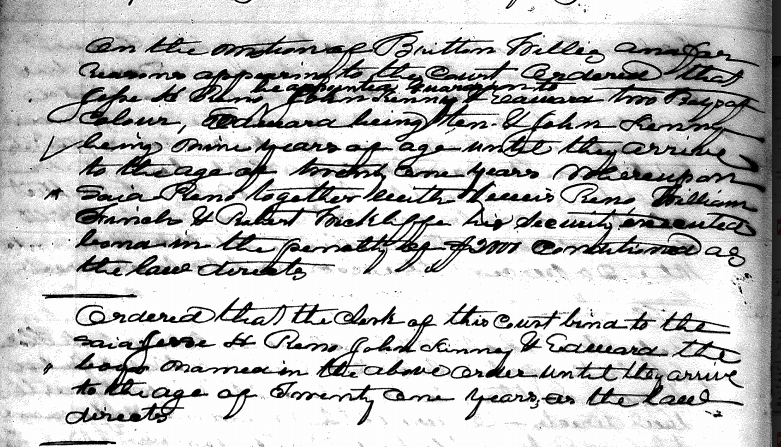 On the motion of Britton Willis and for
reasons appearing to the Court Ordered that
be appointed Guardian to
Jesse H Reno John Kenny & Edward two Boys of
Colour, Edward being ten & John Kenny
being nine years of age until they arrive
to the age of twenty one years Whereupon
said Reno together with Lewis Reno William
& Robert Wickliffe his security executed
bond in the penalty of $2000 conditioned as
the law directs
Ordered that the clerk of this Court bind to the
said Jesse H Reno John Kinney & Edward the
boys named in the above order until they arrive
to the age of Twenty One Years, as the law
directs